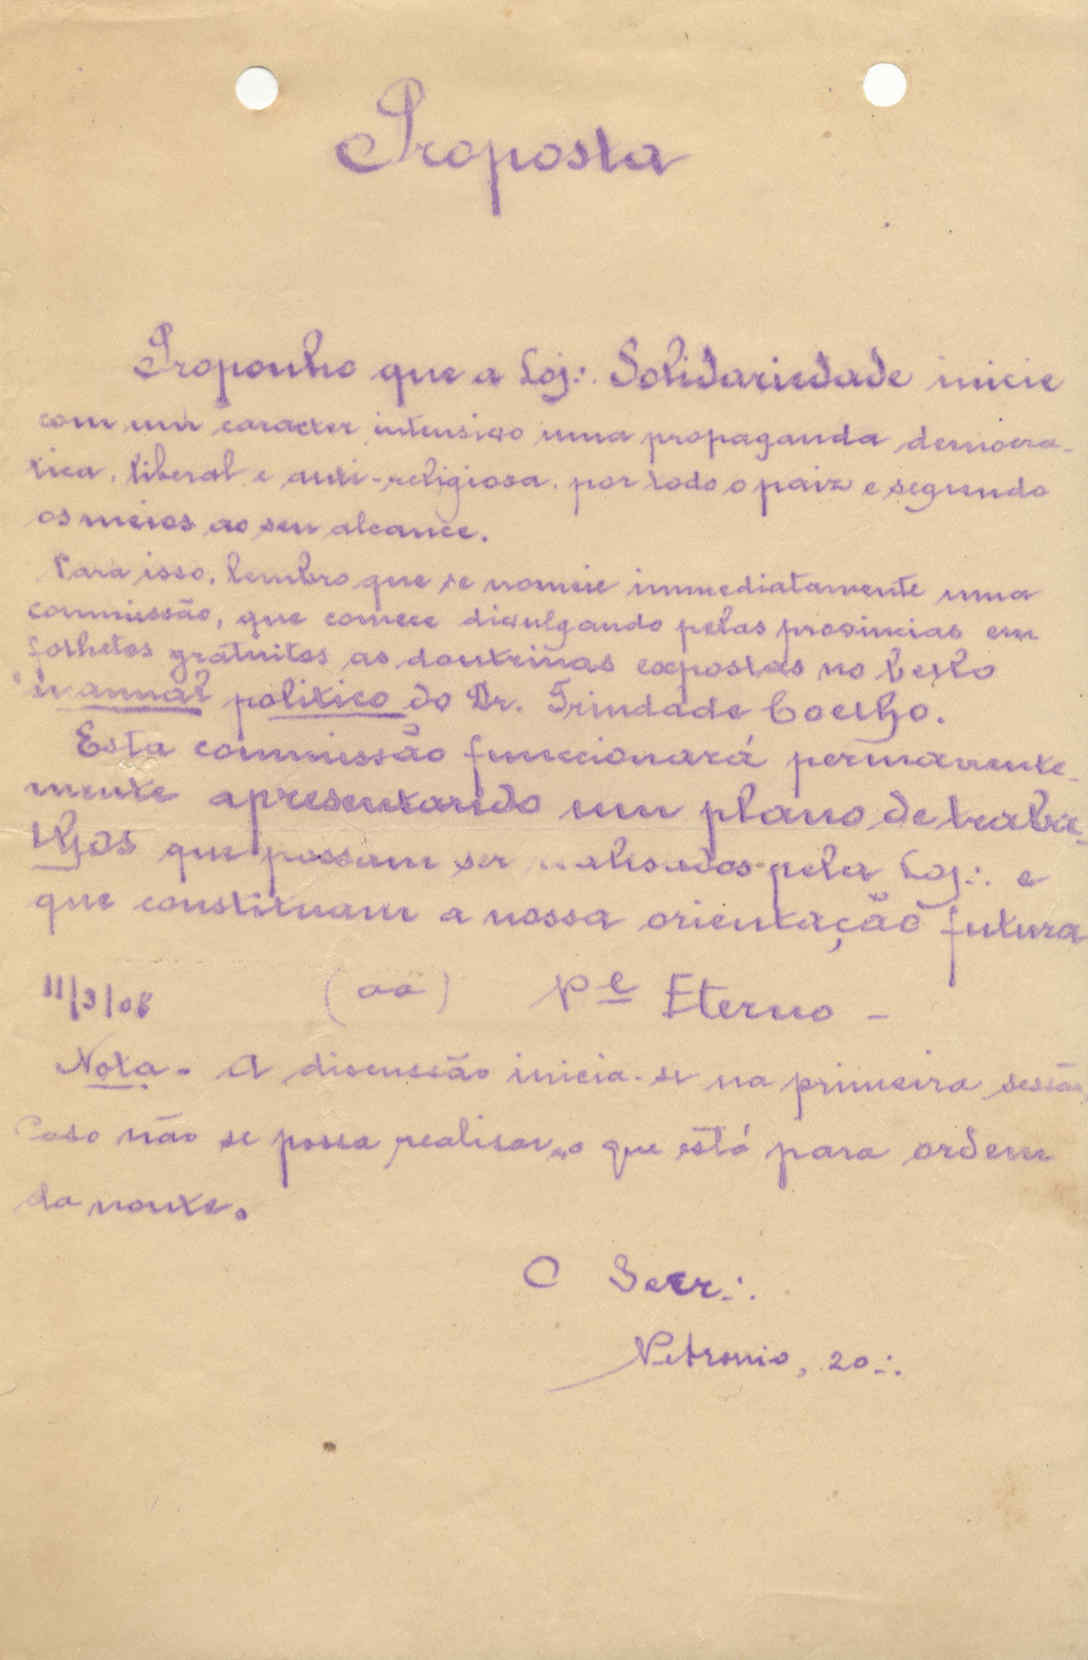 Proposta
Proponho que a Loj∴ Solidariedade inicie
com um caracter intensivo uma propaganda democra-
tica, liberal e anti-religiosa, por todo o paiz e segundo
os meios ao seu alcance.
Para isso, lembro que se nomeie immediatamente uma
commissão, que comece divulgando pelas provincias em
folhetos gratuitos as doutrinas expostas no bello
"Manual politico do Dr. Trindade Coelho.
Esta commissão funccionará permanente-
mente apresentando um plano de traba-
lhos que possam ser realisados pela Loj∴ e
que constituam a nossa orientação futura
11/3/08 (aa) Pe Eterno -
Nota - A discussão inicia-se na primeira sessão,
Caso não se possa realisar o que está para ordem
da noute.
O Secr∴
Petronio, 20∴